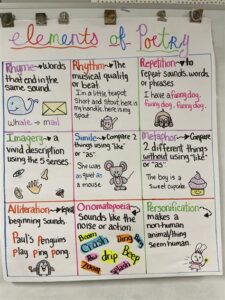 elements of Poetry
Rhyme → Words
that end in the
same sound.
whale → mail
Rhythm → the
musical quality
or beat
I'm a little teapot.
Short and stout, here is
my handle, here is my
spout.
Repetition → to
repeat sounds, words,
or phrases.
I have a funny dog,
funny dog, funny dog.
Imagery → a
vivid description
using the 5 senses.
Simile → Compare 2
things using "like"
or "as".
She was
as quiet as
a mouse.
Metaphor → Compare
2 different things
without using "like"
or "as".
The boy is a
sweet cupcake.
Alliteration →
beginning sounds.
Paul's Penguins
play ping pong.
Onomatopoeia →
Sounds like the
noise or action.
Boom
Crash
Ding
Dong
Pow
drip
Beep
Zoom
Splash
Personification →
makes a
non-human
animal/thing
seem human.